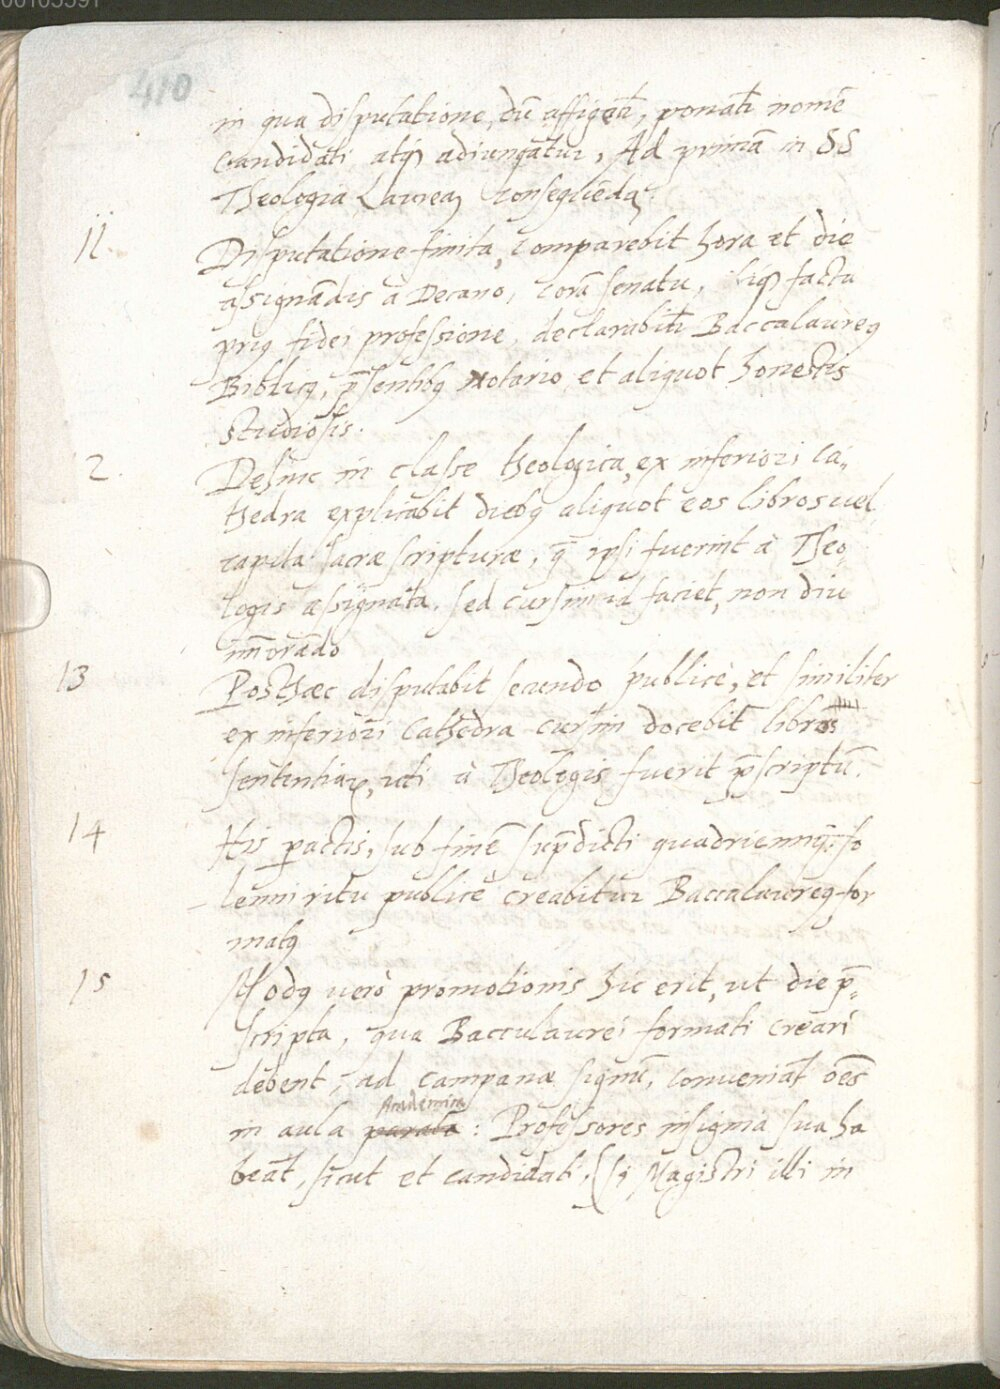 00105391
410
in qua disputatione, cū affigeat, ponat nomē
candidati atq̨ adiungatur, Ad primā in SS
Theologia Lauream conseqūēdā.
11. Disputatione finita, comparebit hora et die
assignādis à Decano, corā senatu, ibiq̨ facta
prius fidei professione, declarabit Baccalaureus
Biblicus, p̄sentibus Notario et aliquot honestis
studiosis.
2. Dehinc in classe theologica, ex inferiori ca„
thedra explicabit diebus aliquot eos libros uel
capita sacræ scripturæ, q̄ ipsi fuerint à Theo„
logis assignata. sed cursim id faciet, non diu
im̄orādo
13 Posthæc disputabit secundo publicè, et similiter
ex inferiori Cathedra cursim docebit libros
sententiarum, uti à Theologis fuerit p̄scriptū.
14 His peractis, sub finē sup̄dicti quadriennij, so
lenni ritu publicè creabitur Baccalaureus for
matus
15 Modus uerò promotionis hic erit, ut die p̄„
scripta, qua Baccalaurei formati creari
debent, ad campanæ signū, conueniāt oēs
Academica
in aula parata : Professores insignia sua ha
beāt, sicut et candidati. (si Magistri illi in